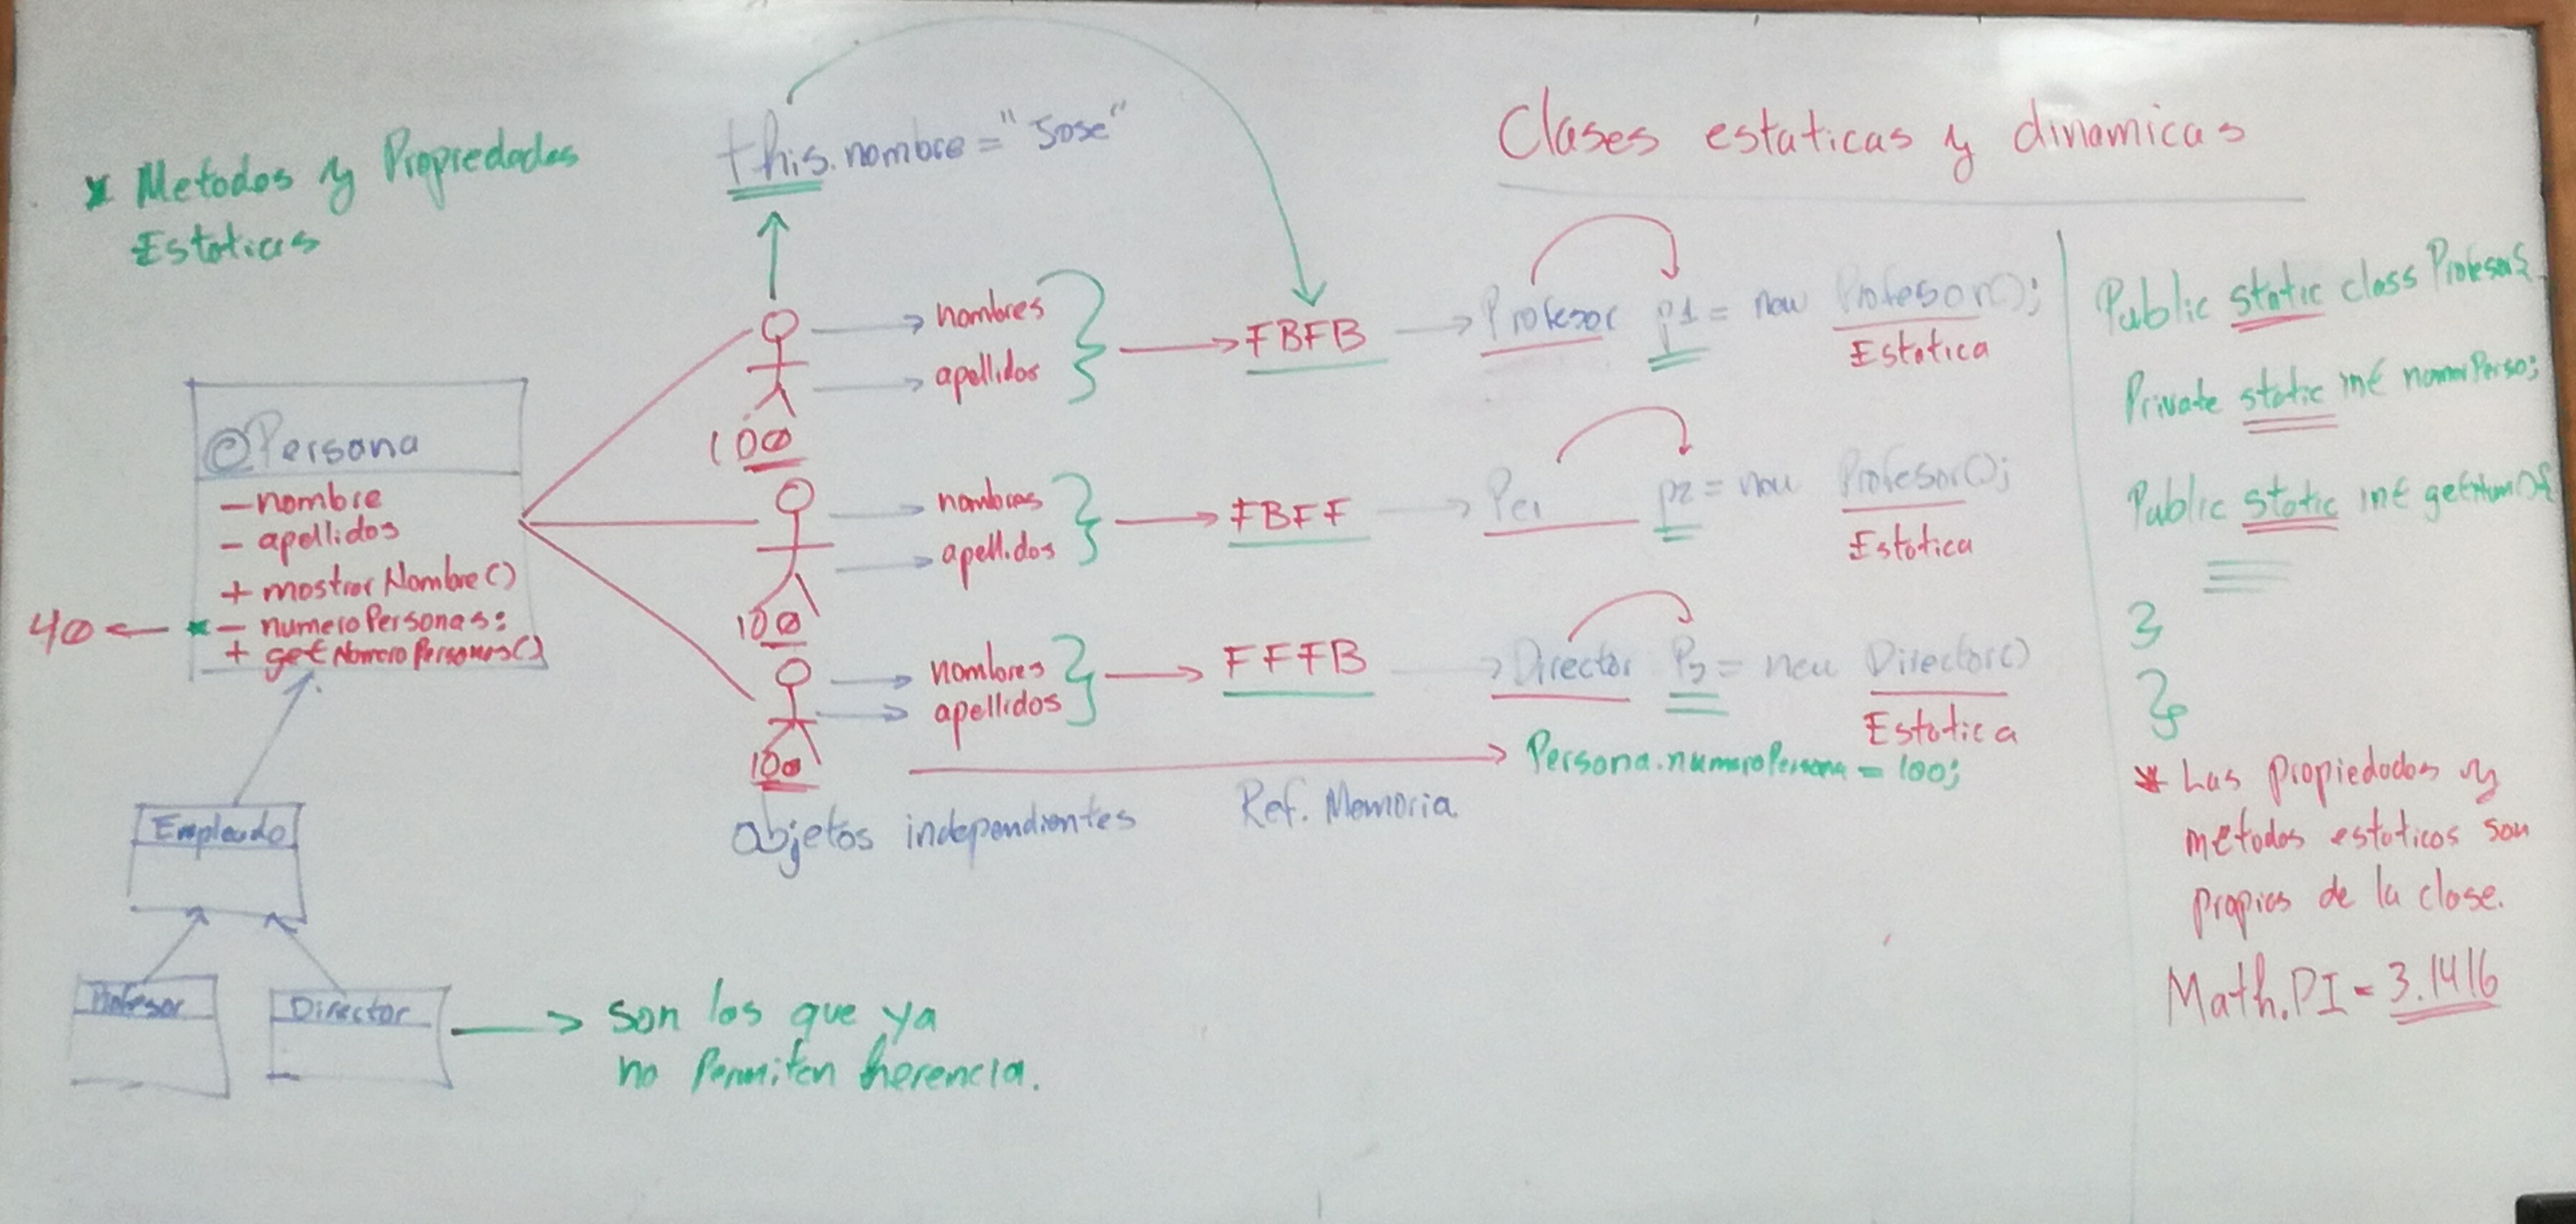 * Metodos y Propiedades
Estaticas
this.nombre = "Jose"
Clases estaticas y dinamicas
© Persona
- nombre
- apellidos
+ mostrar Nombre()
40 ← * - numeroPersonas:
+ getNumeroPersonas()
Empleado
Profesor
Director
→ son los que ya
no Permiten herencia.
nombres
apellidos
100
→ FBFB → Profesor p1 = new Profesor();
Estatica
nombres
apellidos
100
→ FBFF → Per p2 = new Profesor();
Estatica
nombres
apellidos
100
→ FFFB → Director P3 = new Director()
Estatica
→ Persona.numeroPersona = 100;
Objetos independientes
Ref. Memoria
Public static class Profesor{
Private static int
Public static int getNum(){
}
}
* Las propiedades y
metodos estaticos son
propios de la clase.
Math.PI = 3.1416